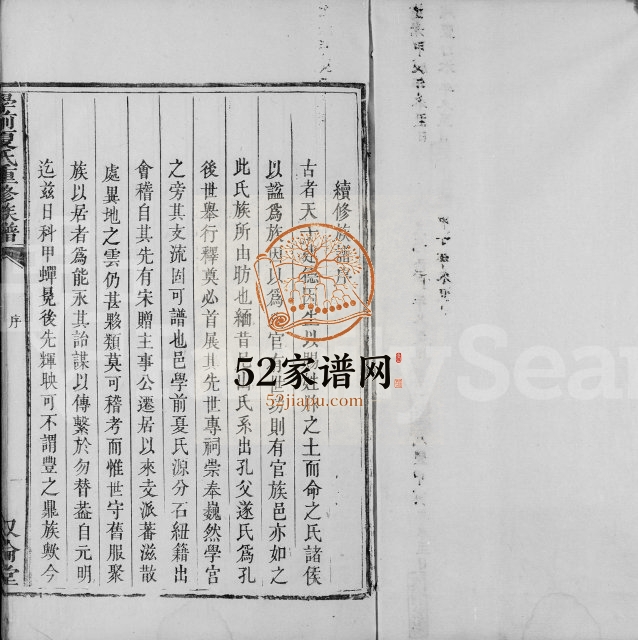 續修族譜序
古者天子建德因生以賜姓胙之土而命之氏諸侯
以諡爲族因以爲 官有世功則有官族邑亦如之
此氏族所由昉也緬昔 氏系出孔父遂氏爲孔
後世舉行釋奠必首展其先世專祠崇奉巍然學宮
之旁其支流固可譜也邑學前夏氏源分石紐籍出
會稽自其先有宋贈主事公遷居以來支派蕃滋散
處異地之雲仍甚夥類莫可稽考而惟世守舊服聚
族以居者爲能承其詒謀以傳繫於勿替葢自元明
迄兹日科甲蟬㬎後先輝映可不謂豐之鼎族歟今
學前夏氏重修族譜
序
52家谱网
52jiapu.com
FamilySear